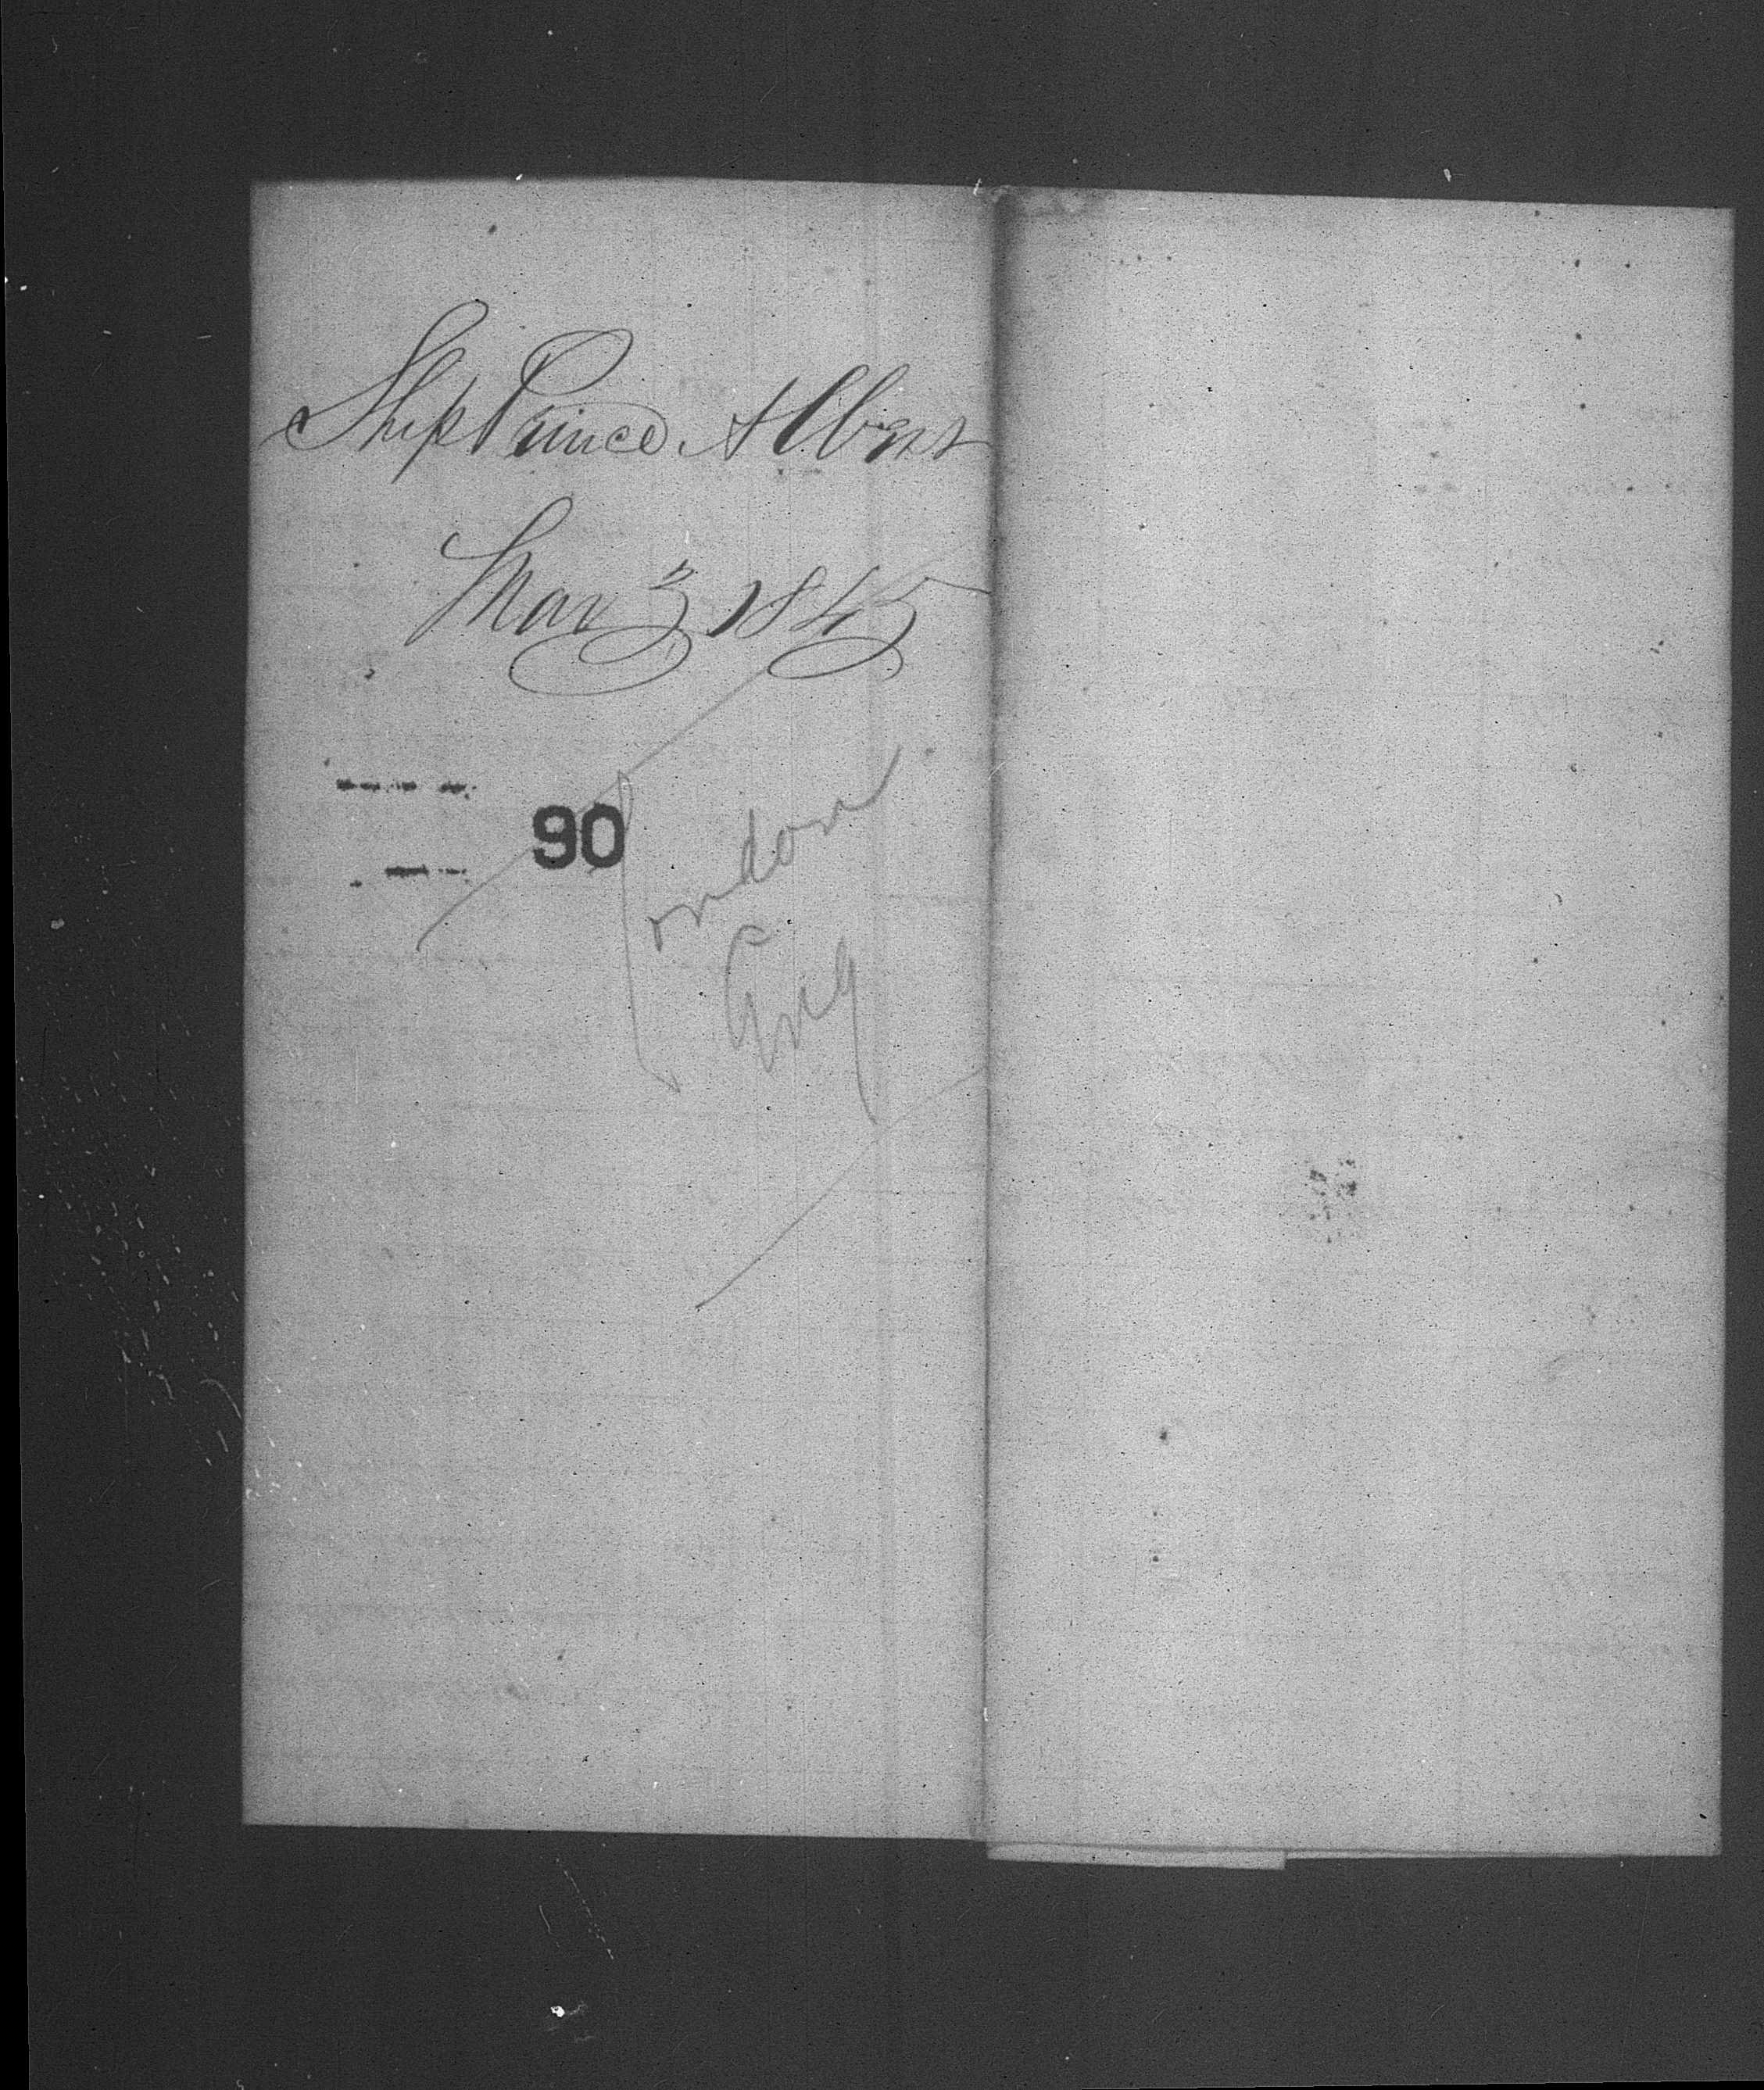 Ship Prince Albert
Mar 3 1845
90
London
Eng